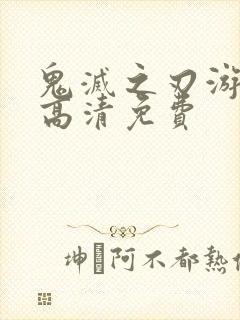 鬼滅之刃游
高清免費
坤阿不都熱